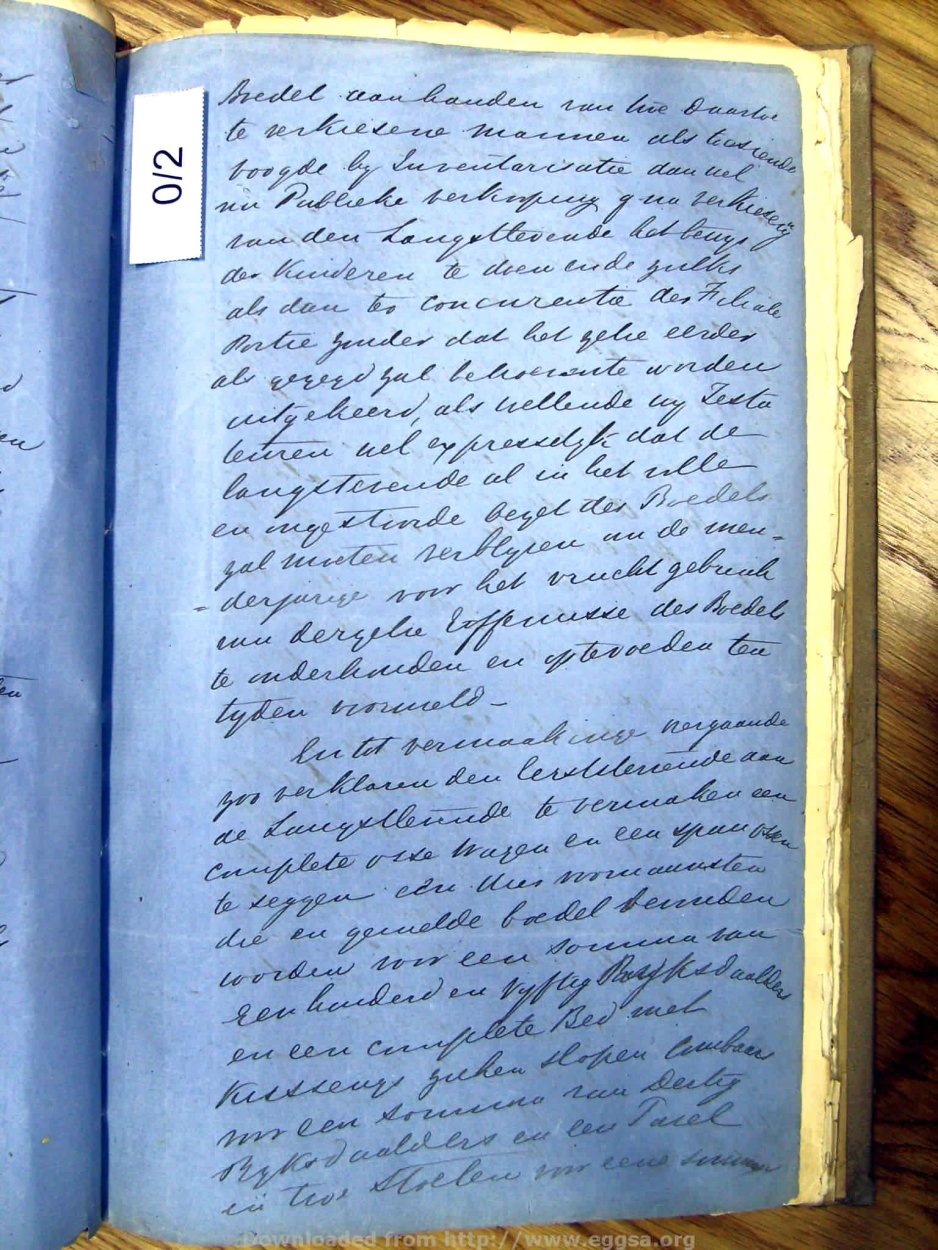 0/2
Boedel aan handen van twe Daartoe
te verkiesene mannen als toesiende
voogde by Inventarisatie dan wel
in Publieke verkoping q na verkiesing
van den Langstlevende het bewys
der Kinderen te doen ende zulks
als dan ter concurentie der Filiale
Portie zonder dat het zelve eerder
als gezegd zal behoeven te worden
uitgekeerd, als willende wy Testa
teuren wel expresselyk dat de
langstlevende al in het volle
en ongestoorde bezet des Boedels
zal moeten verblyven om de men-
-derjarige voor het vrucht gebruik
van dergelve Erffenusse des Boedels
te onderhouden en optevoeden ten
tyden voormeld -
En tot vermaakinge overgaande
zoo verklaren den Eerststervende aan
de Langstlevende te vermaken een
complete osse Wagen en een span ossen
te seggen een Uier voornaamsten
die en gemelde boedel bevinden
worden voor een somma van
Een honderd en vyftig Ryksdaalders
en een complete Bed met
Kussengs zyken slopen Combaars
voor een somma van Dertig
Ryksdaalders en een Tavel
en twe Stoelen voor eene somma
Downloaded from http://www.eggsa.org